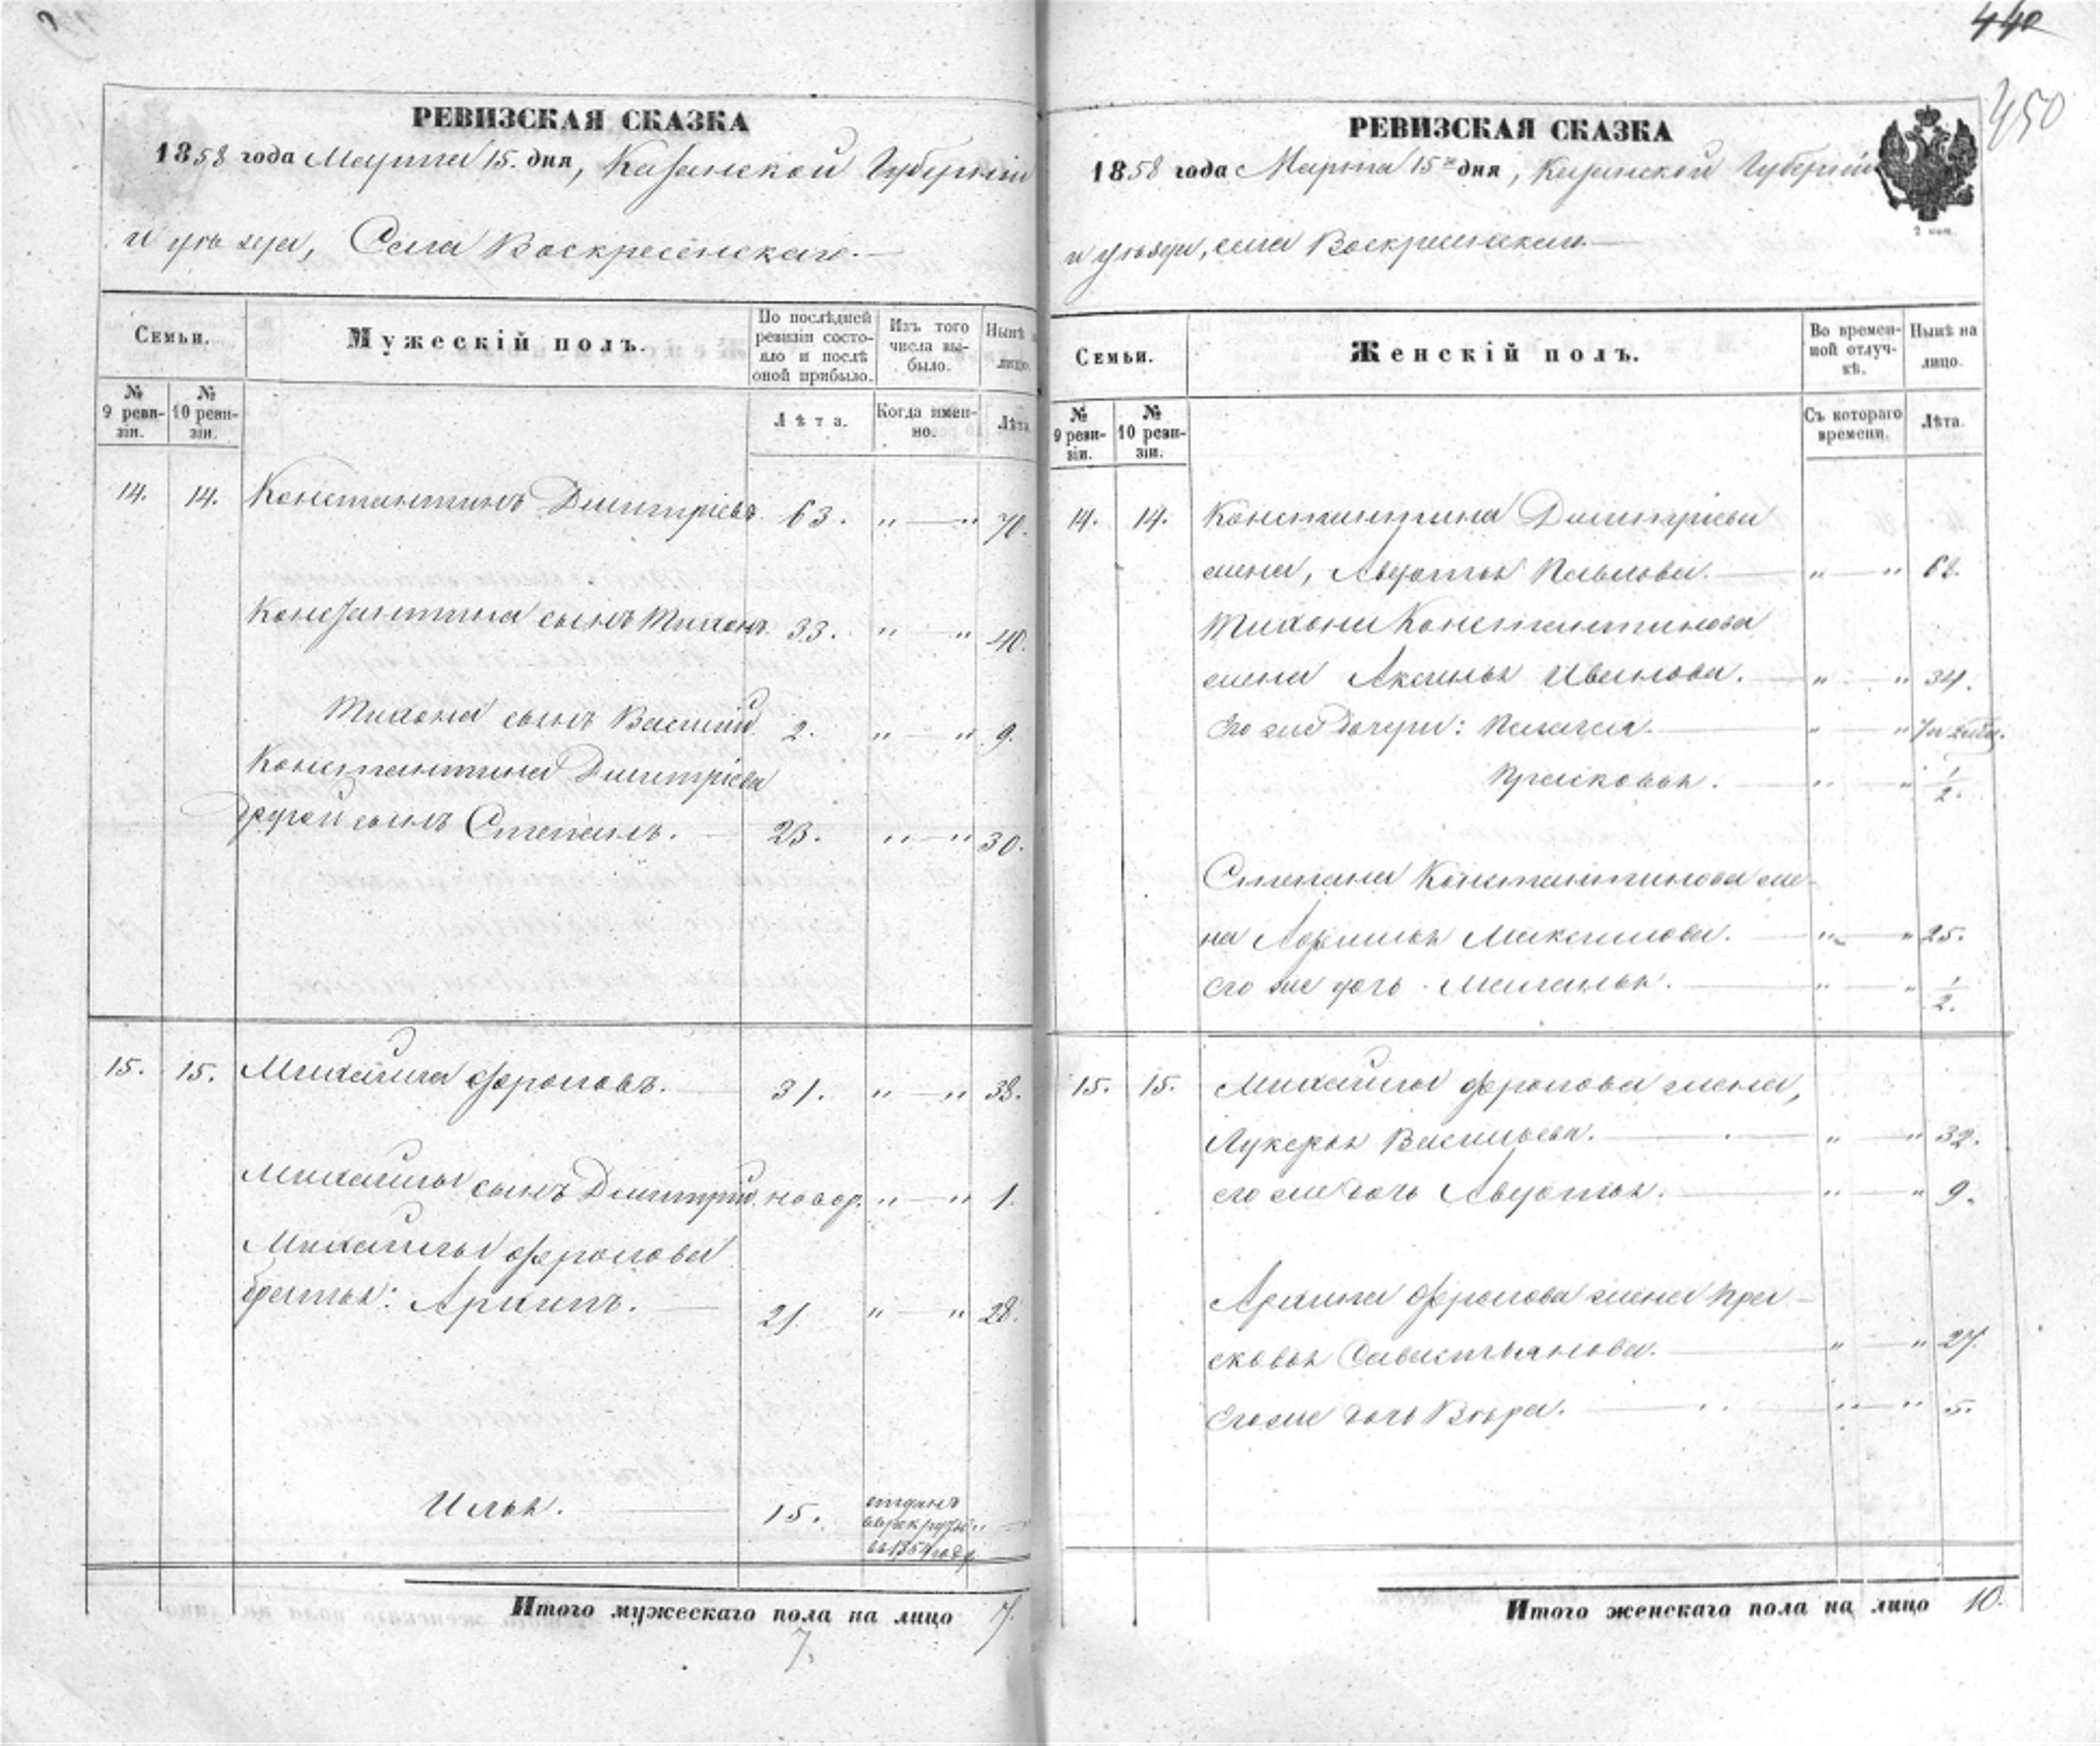 440
450
РЕВИЗСКАЯ СКАЗКА
1858 года Марта 15. дня, Казанской Губерніи
и уѣзда, Села Воскресенскаго.
Семьи.
Мужескій полъ.
По послѣдней ревизіи состояло и послѣ оной прибыло.
Изъ того числа выбыло.
Нынѣ на лицо.
№ 9 ревизіи.
№ 10 ревизіи.
Лѣта.
Когда именно.
Лѣта.
14. 14. Константинъ Димитріевъ 63. " — " 70.
Константина сынъ Тихонъ. 33. " " 40.
Тихона сынъ Василій 2. " — " 9.
Константина Димитріева
другой сынъ Степанъ. — 23. " — " 30.
15. 15. Михайла Фроловъ. — 31. " — " 38.
Михайлы сынъ Димитрій новор. " — " 1.
Михайлы Фролова
братья: Архипъ. — 21. " — " 28.
Илья. — 15. отданъ въ рекруты въ 1854 году " —
Итого мужескаго пола на лицо 7.
7.
РЕВИЗСКАЯ СКАЗКА
1858 года Марта 15го дня, Казанской Губерніи
и уѣзда, села Воскресенскаго.
2 коп.
Семьи.
Женскій полъ.
Во временной отлучкѣ.
Нынѣ на лицо.
№ 9 ревизіи.
№ 10 ревизіи.
Съ котораго времени.
Лѣта.
14. 14. Константина Димитріева
жена, Авдотья Павлова. — " — "
Тихона Константинова
жена Аксинья Иванова. — " — " 34.
Его же дочери: Пелагея. — " — "
Прасковья. — " — " 1/2.
Степана Константинова же-
на Афимья Максимова. — " — " 25.
его же дочь Маланья. — " — " 1/2.
15. 15. Михайлы Фролова жена,
Лукерья Васильева. — " — " 32.
его же дочь Авдотья. — " — " 9.
Архипа Фролова жена Пра-
сковья Савастьянова. — " — " 27.
Его же дочь Вѣра. — " — " 5.
Итого женскаго пола на лицо 10.